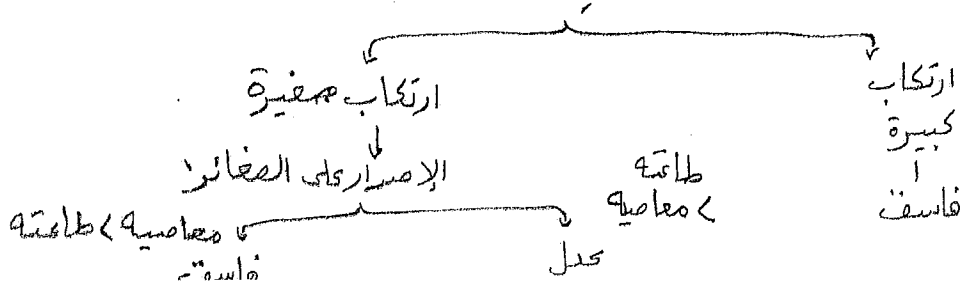 ارتكاب
كبيرة
فاسق
ارتكاب صغيرة
الإصرار على الصغائر
طاعته
> معاصيه
عدل
معاصيه > طاعته
فاسق